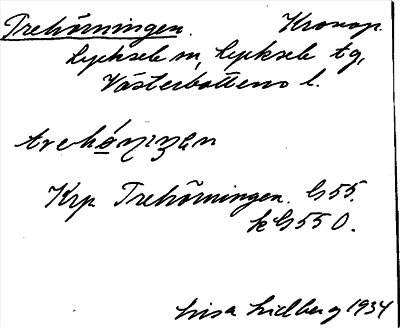 Trehörningen. Kronop.
Lycksele sn, Lycksele tg,
Västerbottens l.
Krp Trehörningen. G55.
k G55 O.
Lisa Lidberg 1934